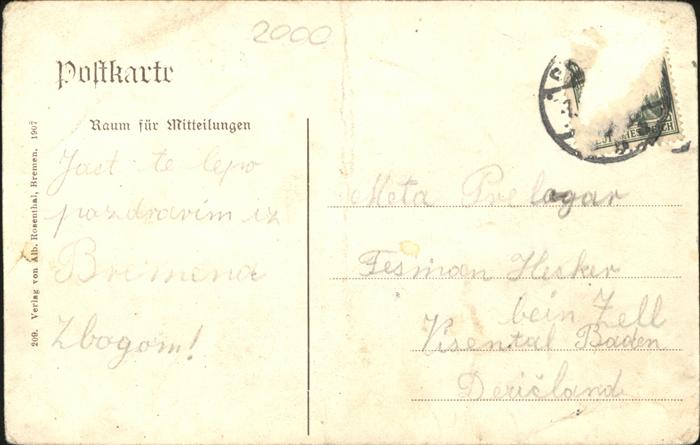 2000
Postkarte
Raum für Mitteilungen
Jast te lepo
pozdravim iz
Bremena
Zbogom!
209. Verlag von Alb. Rosenthal, Bremen. 1907
Meta Prelogar
Fesman Hesker
bein Zell
Visental Baden
Deričland
REICH